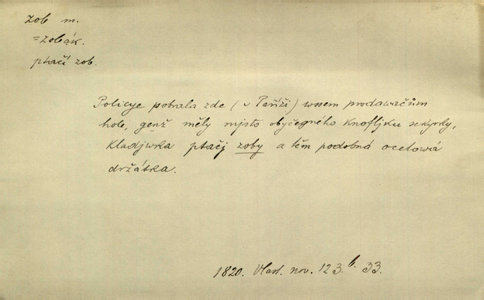 zob m.
=zobák.
ptačí zob.
Policye pobrala zde (v Paříži) wssem prodawačům
hole, genž měly mjsto obyčegného knofljku sekyrky,
kladjwka ptačj zoby a těm podobná ocelowá
držátka.
1820. Vlast. nov. 123.b. 33.